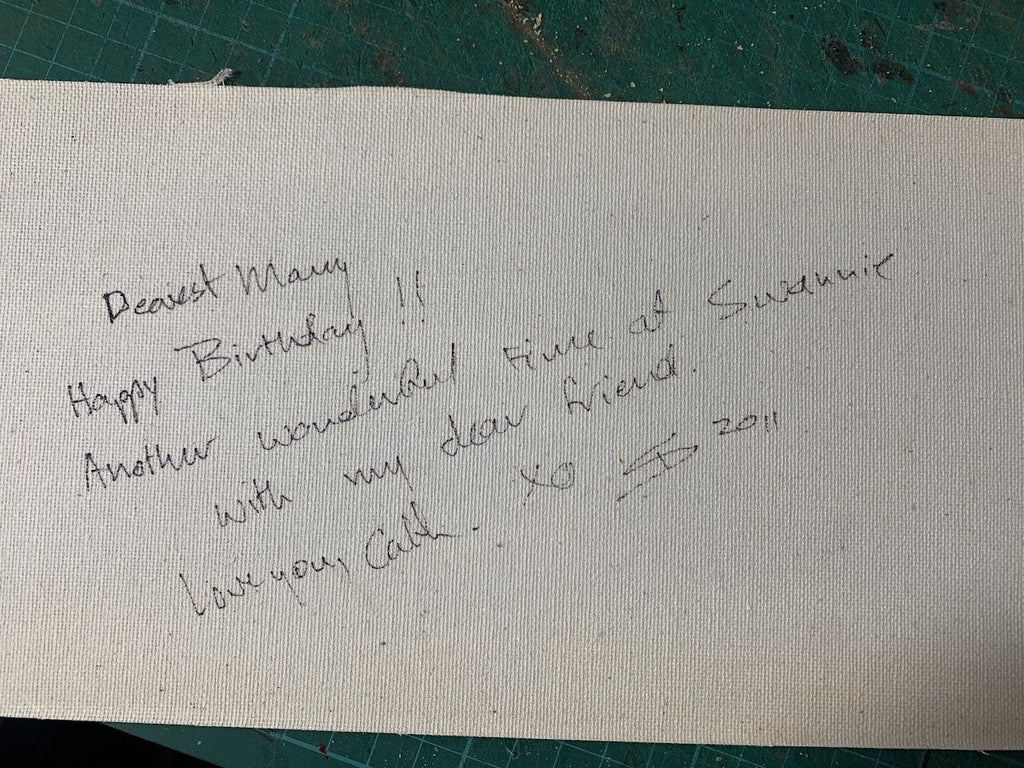 Dearest Mary
Happy Birthday !!
Another wonderful time at Swannie
with my dear friend.
Love you, Cath. XO 2011